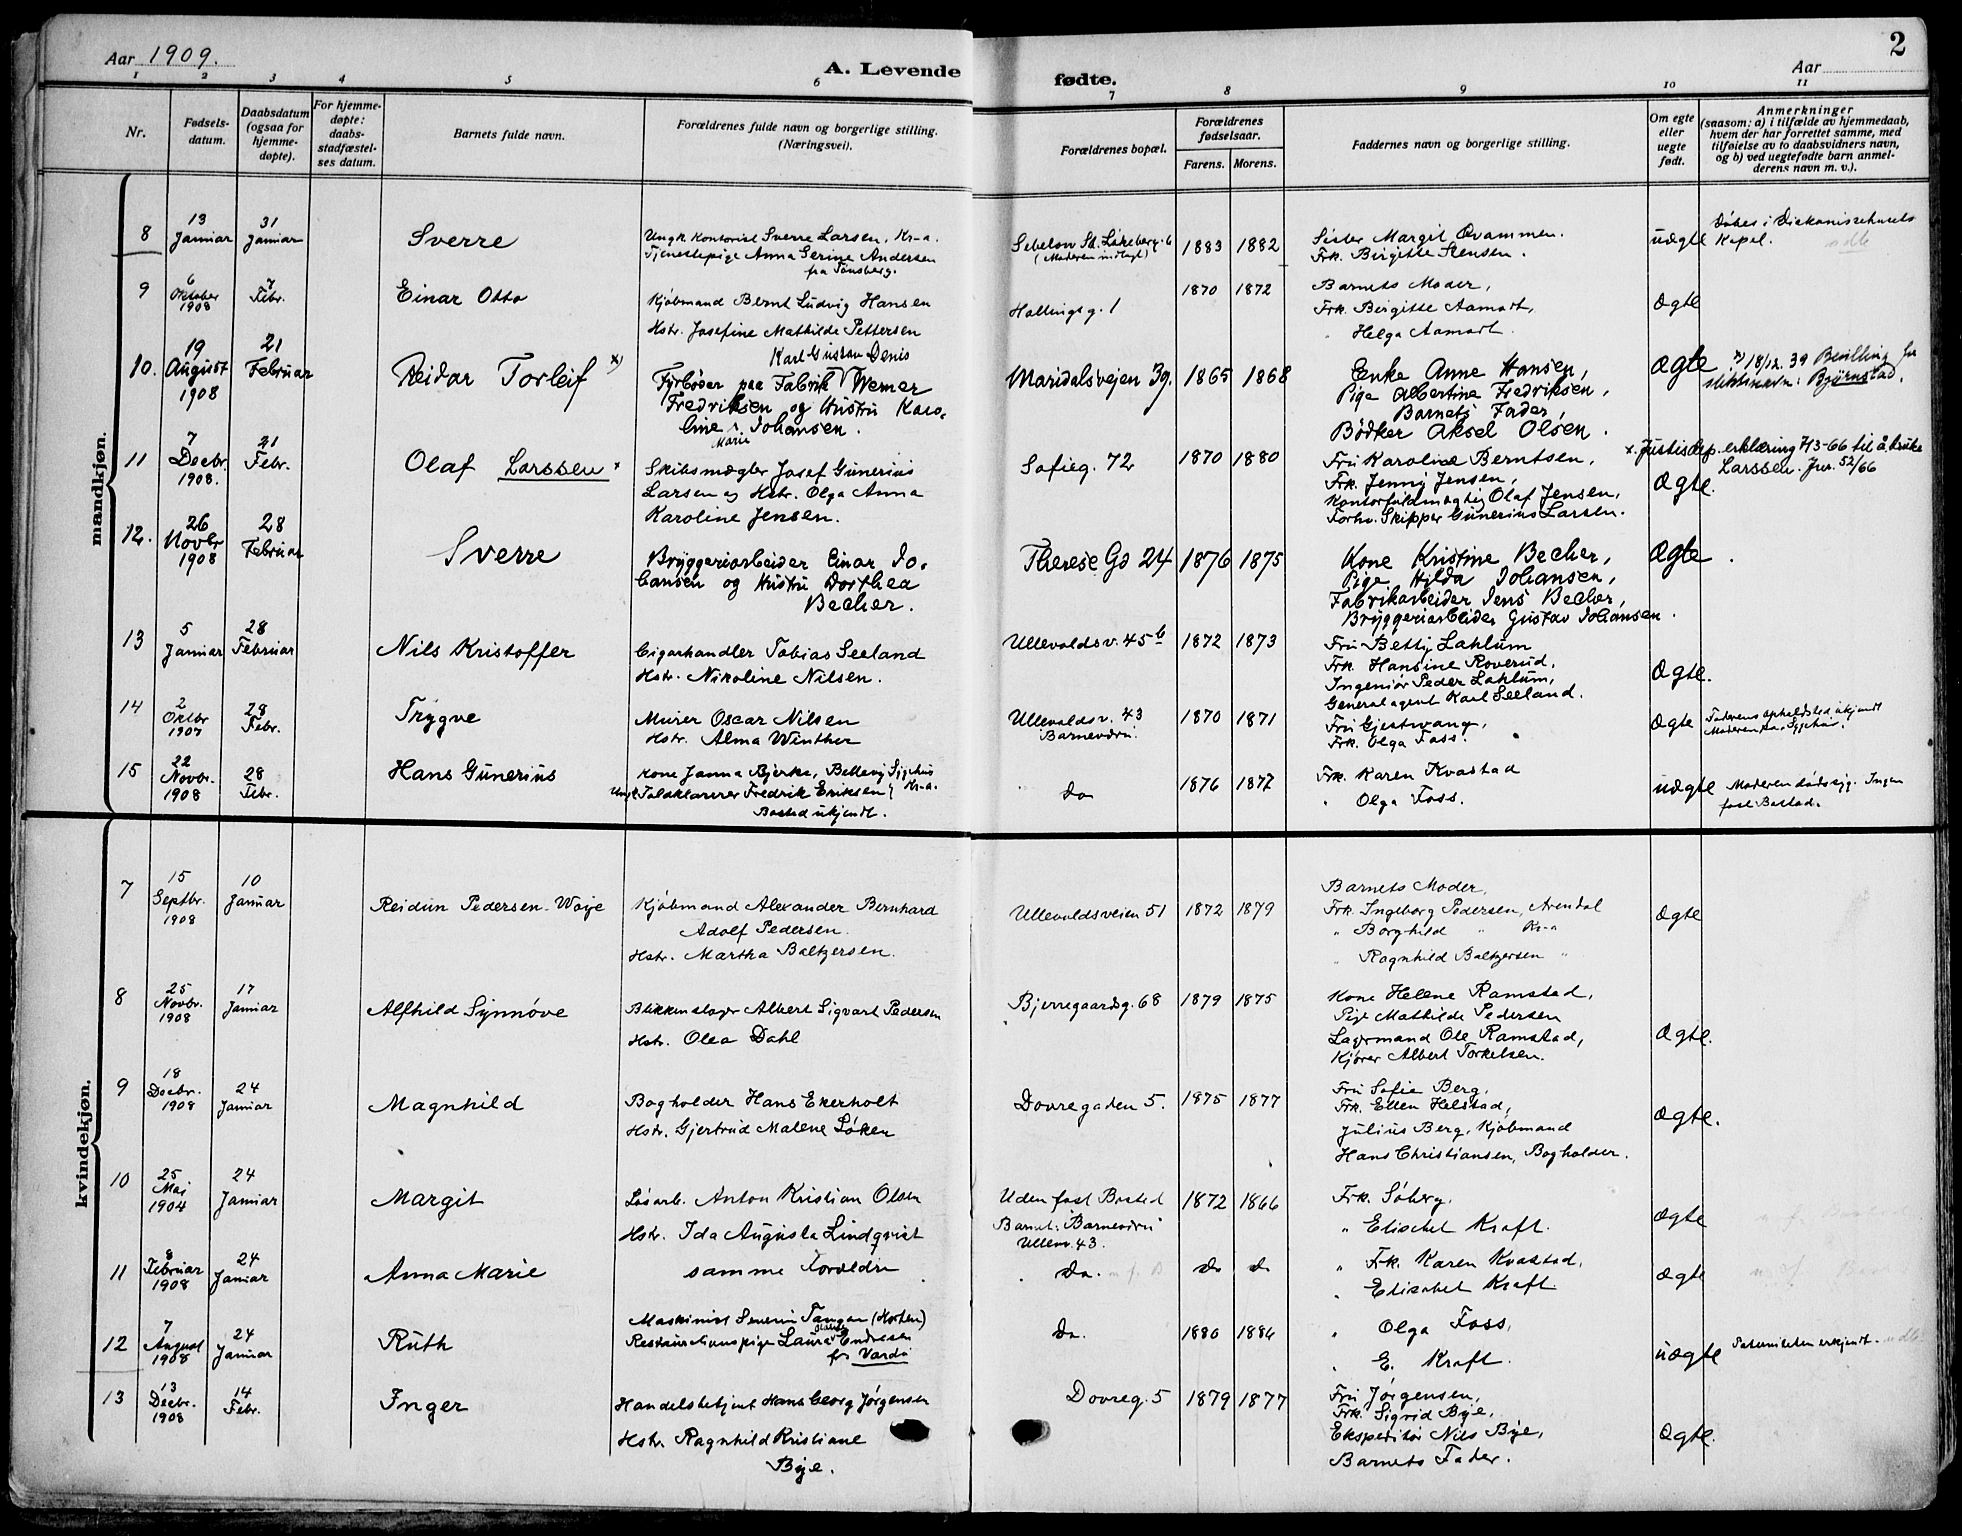 Aar 1909.
A. Levende fødte.
Aar
2
1 2 3 4 5 6 7 8 9 10 11
Nr.
Fødsels-
datum.
Daabsdatum
(ogsaa for
hjemme-
døpte).
For hjemme-
døpte:
daabs-
stadfæstel-
ses datum.
Barnets fulde navn.
Forældrenes fulde navn og borgerlige stilling.
(Næringsvei).
Forældrenes bopæl.
Forældrenes
fødselsaar.
Farens. Morens.
Faddernes navn og borgerlige stilling.
Om egte
eller
uegte
født.
Anmerkninger
(saasom: a) i tilfælde av hjemmedaab,
hvem der har forrettet samme, med
tilføielse av to daabsvidners navn,
og b) ved uegtefødte barn anmel-
derens navn m. v.).
mandkjøn.
8
13
Januar
31
Januar
Sverre
Ungk. Kontorist Sverre Larsen, Kr-a.
Tjenestepige Anna Serine Andersen
fra Tønsberg.
St. Løkeberg. 6
(Moderen indlagt)
1883 1882
Sister Margit Qvammen.
Frk. Birgitte Stensen.
uægte
Døbes i Diakonissehusets
Kapel.
9
6
Oktober
1908
7
Febr.
Einar Otto
Kjøbmand Bernt Ludvig Hansen
Hstr. Josefine Mathilde Pettersen
Hallingsg. 1
1870 1872
Barnets Moder,
Frk. Birgitte Aamodt,
" Helga Aamodt.
ægte
10.
19
August
1908
21
Februar
Reidar Torleif x)
Karl Gustav Denis
Fyrbøder paa Fabrik Werner
Fredriksen og Hustru Karo-
line Johansen.
Marie
Maridalsveien 39.
1865 1868
Enke Anne Hansen,
Pige Albertine Fredriksen,
Barnets Fader,
Bødker Aksel Olsen.
ægte
x) 18/12. 39 Bevilling for
slektsnavn: Bjørnstad.
11
7
Decbr.
1908.
21
Febr.
Olaf Larssen x
Skibsmægler Josef Gunerius
Larsen og Hstr. Olga Anna
Karoline Jensen.
Sofieg. 72
1870 1880
Fru Karoline Berntsen,
Frk. Jenny Jensen,
Kontorfuldmægtig Olaf Jensen,
Forhv. Skipper Gunerius Larsen.
ægte.
x. Justisdep. erklæring 7/3-66 til å bruke
Larssen. Jnr. 52/66
12.
26
Novbr
1908
28
Februar
Sverre
Bryggeriarbeider Einar Jo-
hansen og Hustru Dorthea
Becher.
Therese Gd 24
1876 1875
Kone Kristine Becher,
Pige Hilda Johansen,
Fabrikarbeider Jens Becher,
Bryggeriarbeider Gustav Johansen.
ægte.
13
5
Januar
28
Februar
Nils Kristoffer
Cigarhandler Tobias Seeland
Hstr. Nikoline Nilsen.
Ullevoldsv. 45 b
1872 1873
Fru Betty Lahlum
Frk. Hansine Roverud,
Ingeniør Peder Lahlum,
Generalagent Karl Seeland.
ægte.
14
2
Oktbr
1907
28
Febr.
Trygve
Murer Oscar Nilsen
Hstr. Alma Winther
Ullevoldsv. 43
Barneværn.
1870 1871
Fru Gjestvang,
Frk. Olga Foss.
ægte
Faderens opholdsted ukjendt
Moderen paa Sygehus.
15
22
Novbr.
1908
28
Febr.
Hans Gunerius
Kone Janna Bjerke, Sygehus
Ungk. Toldklarerer Fredrik Eriksen, Kr-a.
Bosted ukjendt.
do
1876 1877
Frk. Karen Kvastad
" Olga Foss.
uægte
Moderen dødssyg. Ingen
fast Bosted.
kvindekjøn.
7
15
Septbr.
1908
10
Januar
Reidun Pedersen-Woje
Kjøbmand Alexander Bernhard
Adolf Pedersen.
Hstr. Martha Baltzersen.
Ullevoldsveien 51
1872 1879
Barnets Moder,
Frk. Ingeborg Pedersen, Arendal
" Borghild " Kr-a
" Ragnhild Baltzersen "
ægte
8
25
Novbr.
1908
17
Januar
Alfhild Synnøve
Blikkenslager Albert Sigvart Pedersen
Hstr. Olea Dahl
Bjerregaardsg. 68
1879 1875
Kone Helene Ramstad,
Pige Mathilde Pedersen
Lagermand Ole Ramstad,
Kjører Albert Torkelsen.
ægte.
9
18
Decbr.
1908
24
Januar
Magnhild
Bogholder Hans Ekerholt
Hstr. Gjertrud Malene Løken
Dovregaden 5.
1875 1877
Fru Sofie Berg,
Frk. Ellen Helstad,
Julius Berg, Kjøbmand
Hans Christiansen, Bogholder.
ægte.
10
25
Mai
1904
24
Januar
Margit
Løsarb. Anton Kristian Olsen
Hstr. Ida Augusta Lindqvist
Uden fast Bosted
Barnet: Barneværn
Ullev. 43.
1872 1866
Frk. Søberg.
" Elisabet Kraft.
ægte
11
8
Februar
1908
24
Januar
Anna Marie
samme Forældre
do.
do do
" Frk. Karen Kvastad,
" Elisabet Kraft.
ægte
12
7
August
1908
24
Januar
Ruth
Maskinist Severin Tangen (Horten)
Restaurationspige Laura Endresen
fr. Vardø
do.
1880 1886
" Olga Foss,
" E. Kraft.
uægte
Paterniteten erkjendt.
13
13
Decbr.
1908
14
Febr.
Inger
Handelsbetjent Hans Georg Jørgensen
Hstr. Ragnhild Kristiane
Bye.
Dovreg. 5
1879 1877
Fru Jørgensen,
Frk. Sigrid Bye,
Ekspeditør Nils Bye,
Barnets Fader.
ægte.